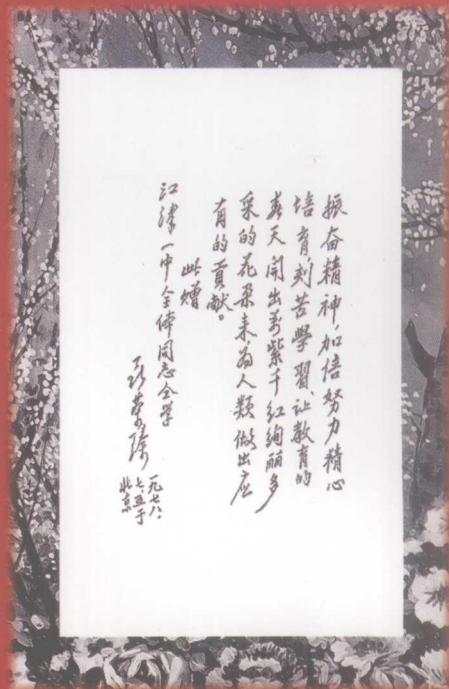 振奋精神,加倍努力精心
培育刻苦學習,让教育的
春天開出萬紫千红绚丽多
采的花朵来為人類做出应
有的貢献。
此赠
江津一中全体同志仝学
聂荣臻
一九七八、
七、五于
北京